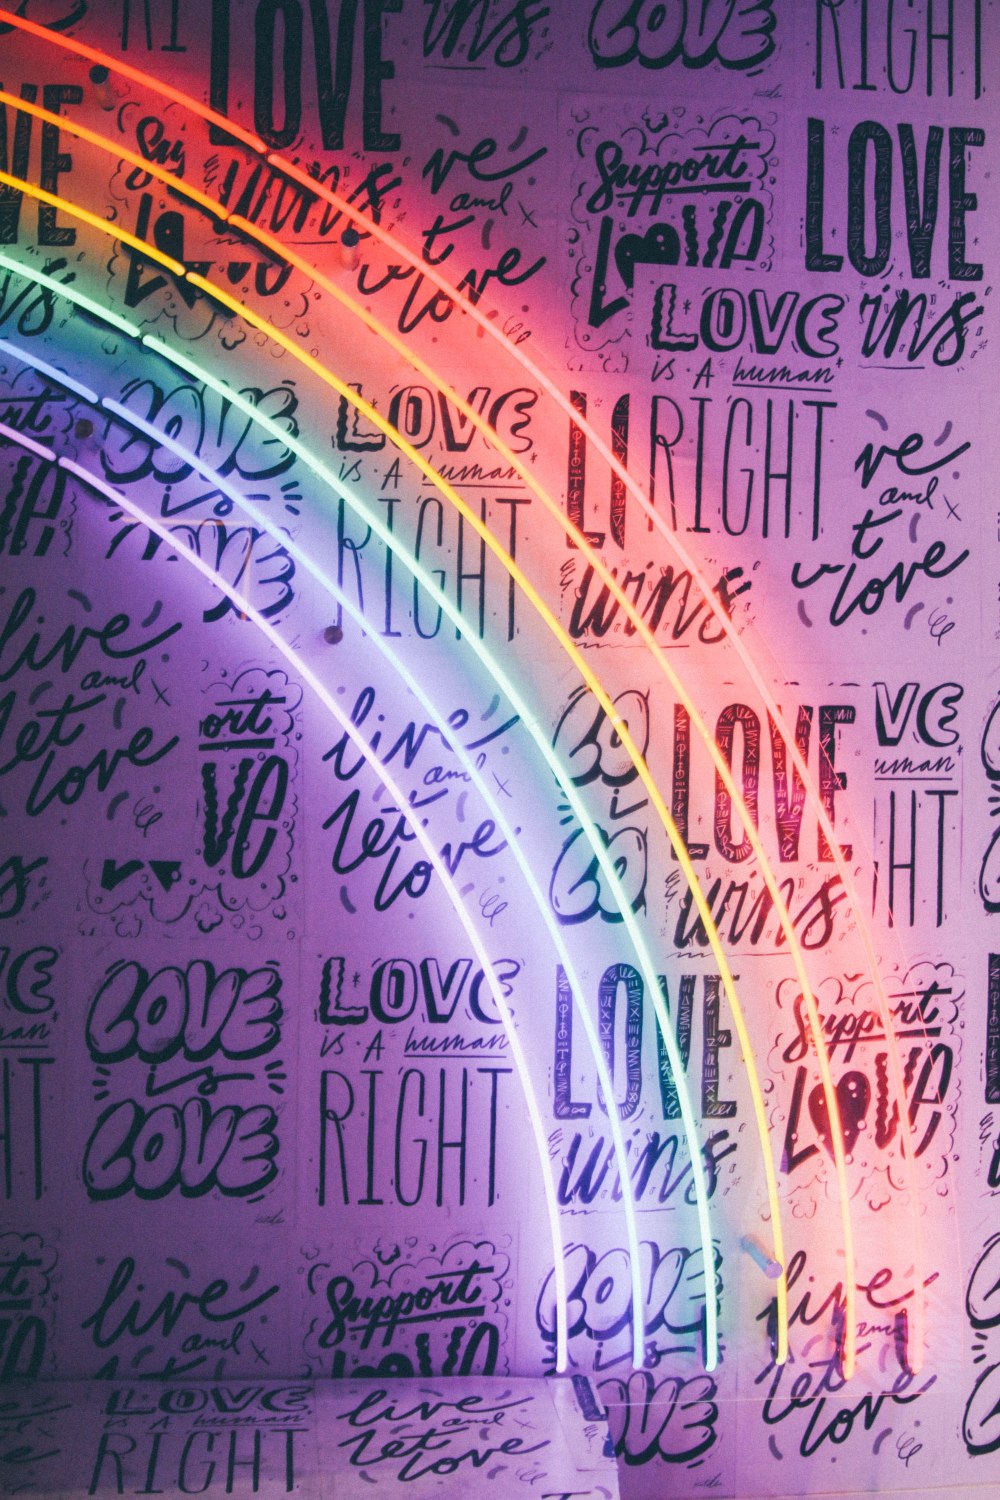 LOVE
wins
LOVE
RIGHT
LOVE
wins
ve
and
t
love
Support
LOVE
LOVE
wins
LOVE
is A human
RIGHT
LOVE
is
LOVE
is A human
RIGHT
wins
ve
and
t
love
live
and
let
love
ort
VE
live
and
let
love
LOVE
wins
VE
uman
HT
LOVE
is
LOVE
LOVE
is A human
RIGHT
LOVE
wins
Support
LOVE
live
and
let
love
Support
LOVE
LOVE
is
LOVE
live
and
let
love
LOVE
is A human
RIGHT
live
and
let
love